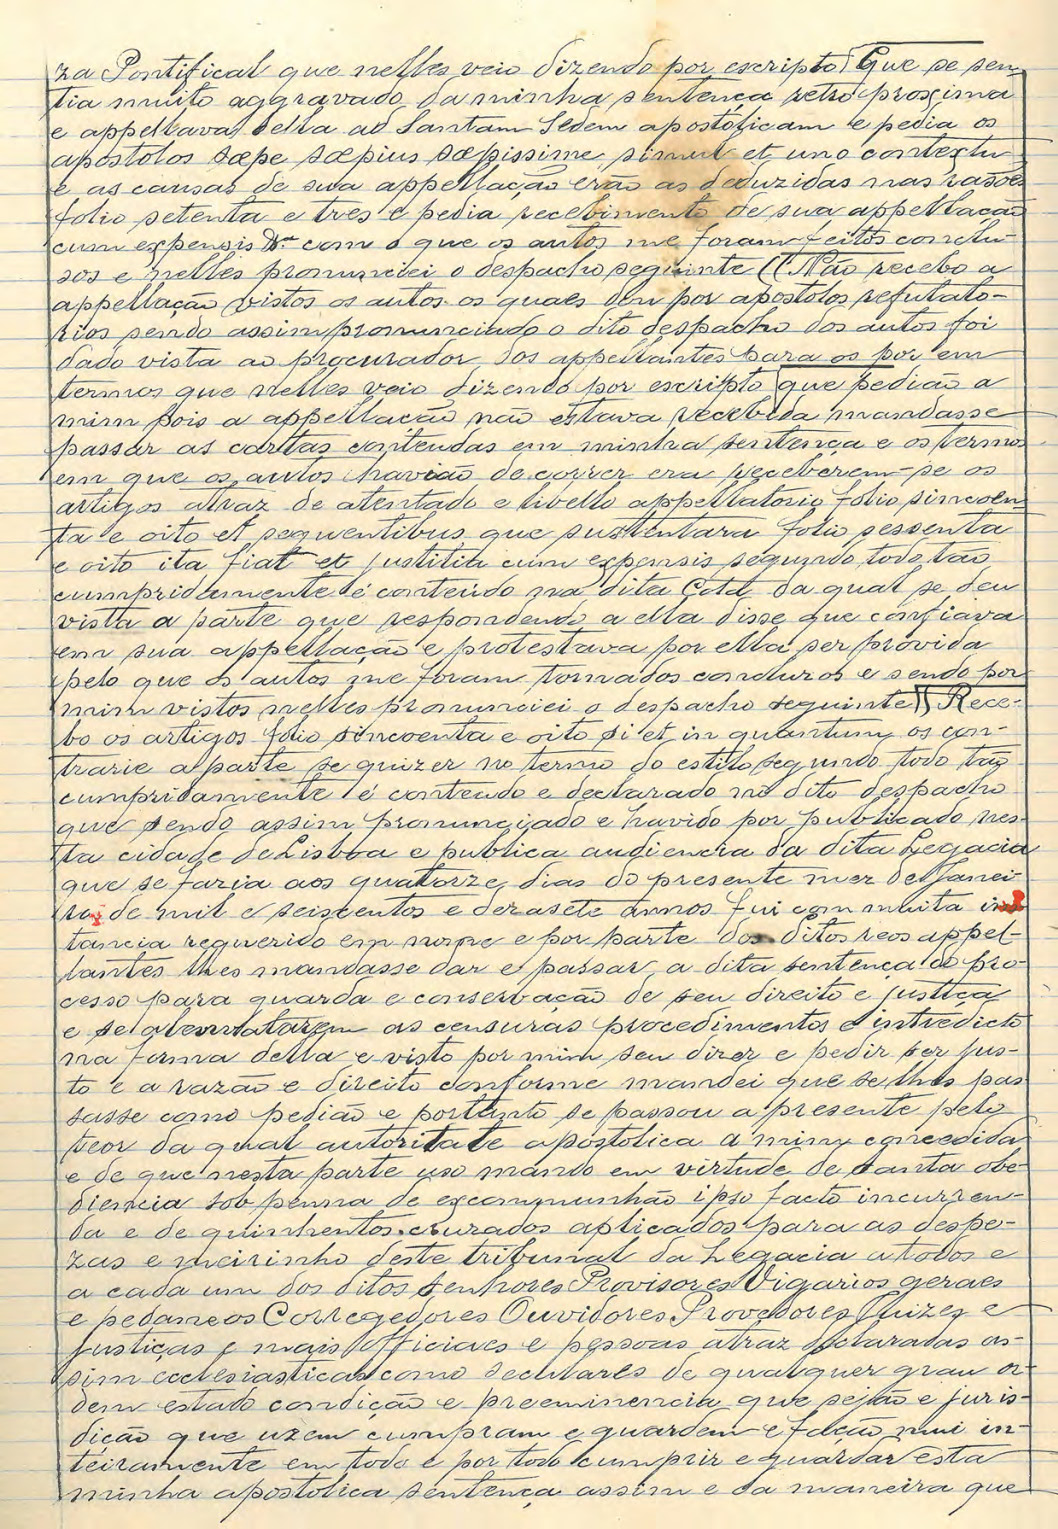 za Pontifical que nelles veio dizendo por escripto Que se sen-
tia muito aggravado da minha sentença retro proxima
e appellava della ad Santam Sedem apostolicam e pedia os
apostolos sæpe sæpius sæpissime, simul et uno contextu
e as causas de sua appellação erão as deduzidas nas rasões
folio setenta e tres e pedia recebimento de sua appellação
cum expensis com o que os autos me foram feitos conclu-
sos e nelles pronunciei o despacho seguinte (( Não recebo a
appellação vistos os autos os quaes dou por apostolos refutato-
rios sendo assim pronunciado o dito despacho dos autos foi
dado vista ao procurador dos appellantes para os por em
termos que nelles veio dizendo por escripto que pedião a
mim pois a appellação não estava recebida mandasse
passar as cartas contendas em minha sentença e os termos
em que os autos havião de correr era receberem-se os
artigos atraz de atentado e libello appellatorio folio sincoen
ta e oito et sequentibus que sustentara folio sessenta
e oito ita fiat et justitia cum expensis segundo todo tão
cumpridamente é conteúdo na dita Cota da qual se deu
vista a parte que respondendo a ella disse que confiava
em sua appellação e protestava por ella ser provida
pelo que os autos me foram tornados concluzos e sendo por
mim vistos nelles pronunciei o despacho seguinte )) Rece-
bo os artigos folio sincoenta e oito si et in quantum os con-
trarie a parte se quizer no termo do estilo segundo todo tão
cumpridamente é conteudo e declarado no dito despacho
que sendo assim pronunciado e havido por publicado nes-
ta cidade de Lisboa e publica audiencia da dita Legacia
que se fazia aos quatorze dias do presente mez de Janei-
ro de mil e seiscentos e dezasete annos fui com muita ins
tancia requerido em nome e por parte dos ditos reos appel-
lantes lhes mandasse dar e passar a dita sentença do pro-
cesso para guarda e conservação de seu direito e justiça
e se alevantarem as censuras procedimentos e intredicto
na forma della e visto por mim seu dizer e pedir ser jus-
to e a razão e direito conforme mandei que se lhes pas
sasse como pedião e portanto se passou a presente pelo
teor da qual autoritate apostolica a mim concedida
e de que nesta parte uso mando em virtude de santa obe-
diencia sob penna de excommunhão ipso facto incurren-
da e de quinhentos cruzados aplicados para as despe-
zas e meirinho deste tribunal da Legacia a todos e
a cada um dos ditos Senhores Provisores Vigarios geraes
e pedaneos Corregedores Ouvidores Provedores Juizes e
justiças e mais Officiaes e pessoas atraz declaradas as-
sim ecclesiasticas como seculares de qualquer grau or
dem estado condição e preeminencia que sejão e juris-
dição que uzem cumpram e guardem e fação mui in-
teiramente em todo e por todo cumprir e guardar esta
minha apostolica sentença assim e da maneira que